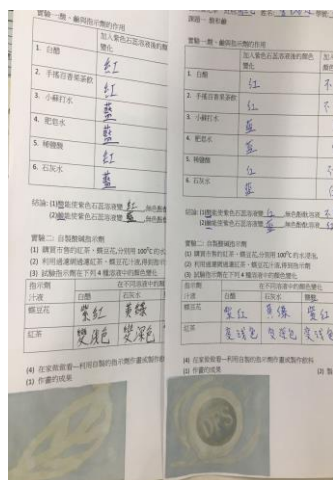 實驗一 酸、鹼與指示劑的作用
加入紫色石蕊溶液後的顏
變化
1. 白醋
紅
2. 手搖百香果茶飲
紅
3. 小蘇打水
藍
4. 肥皂水
藍
5. 稀鹽酸
紅
6. 石灰水
藍
結論: (1)酸能使紫色石蕊溶液變 紅
(2)鹼能使紫色石蕊溶液變 藍
實驗二: 自製酸鹼指示劑
(1) 購買市售的紅茶、蝶豆花,分別用 100°C 的水
(2) 利用過濾網過濾紅茶、蝶豆花汁液,得到指示
(3) 試驗指示劑在下列 4 種溶液中的顏色變化
指示劑
在不同溶液中的顏
汁液 白醋 石灰水
蝶豆花 紫紅 黃綠
紅茶 變淺色 變深色
(4) 在家做做看—利用自製的指示劑作畫或製作飲
(1) 作畫的成果
課題一 酸和鹼
實驗一 酸、鹼與指示劑的作用
加入紫色石蕊溶液後的顏色
變化
1. 白醋
紅
2. 手搖百香果茶飲
紅
3. 小蘇打水
藍
4. 肥皂水
藍
5. 稀鹽酸
紅
6. 石灰水
藍
結論: (1)酸能使紫色石蕊溶液變 紅
(2)鹼能使紫色石蕊溶液變 藍
實驗二: 自製酸鹼指示劑
(1) 購買市售的紅茶、蝶豆花,分別用 100°C 的水浸泡,
(2) 利用過濾網過濾紅茶、蝶豆花汁液,得到指示劑
(3) 試驗指示劑在下列 4 種溶液中的顏色變化
指示劑
在不同溶液中的顏色變化
汁液 白醋 石灰水 鹽酸
蝶豆花 紫紅 黃綠 紫紅
紅茶 變淺色 變深色 變淺色
(4) 在家做做看—利用自製的指示劑作畫或製作飲料
(1) 作畫的成果